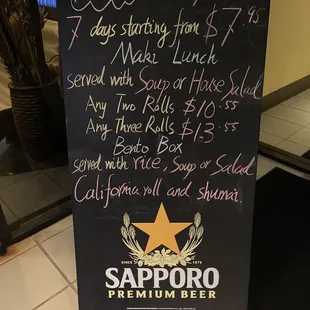 7 days starting from $7.95
Maki Lunch
served with Soup or House Salad
Any Two Rolls $10.55
Any Three Rolls $13.55
Bento Box
served with rice, Soup or Salad
California roll and shumai.
SINCE 1876
SAPPORO
PREMIUM BEER